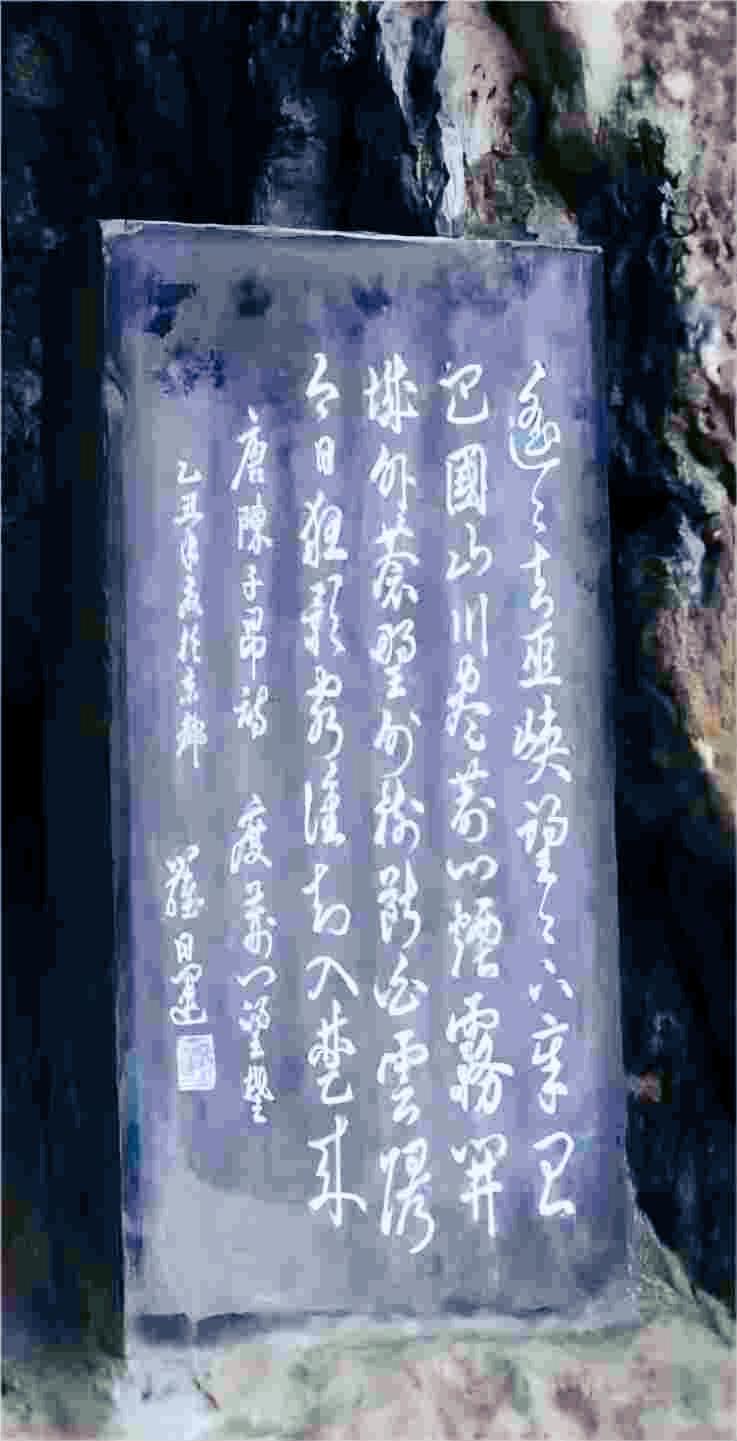 遙々去巫峽望々下章台
巴國山川盡荊門煙霧開
城分蒼野外樹斷白雲隈
今日狂歌客誰知入楚來
唐陳子昂詩 度荊門望楚
乙丑年夏於京都 羅日